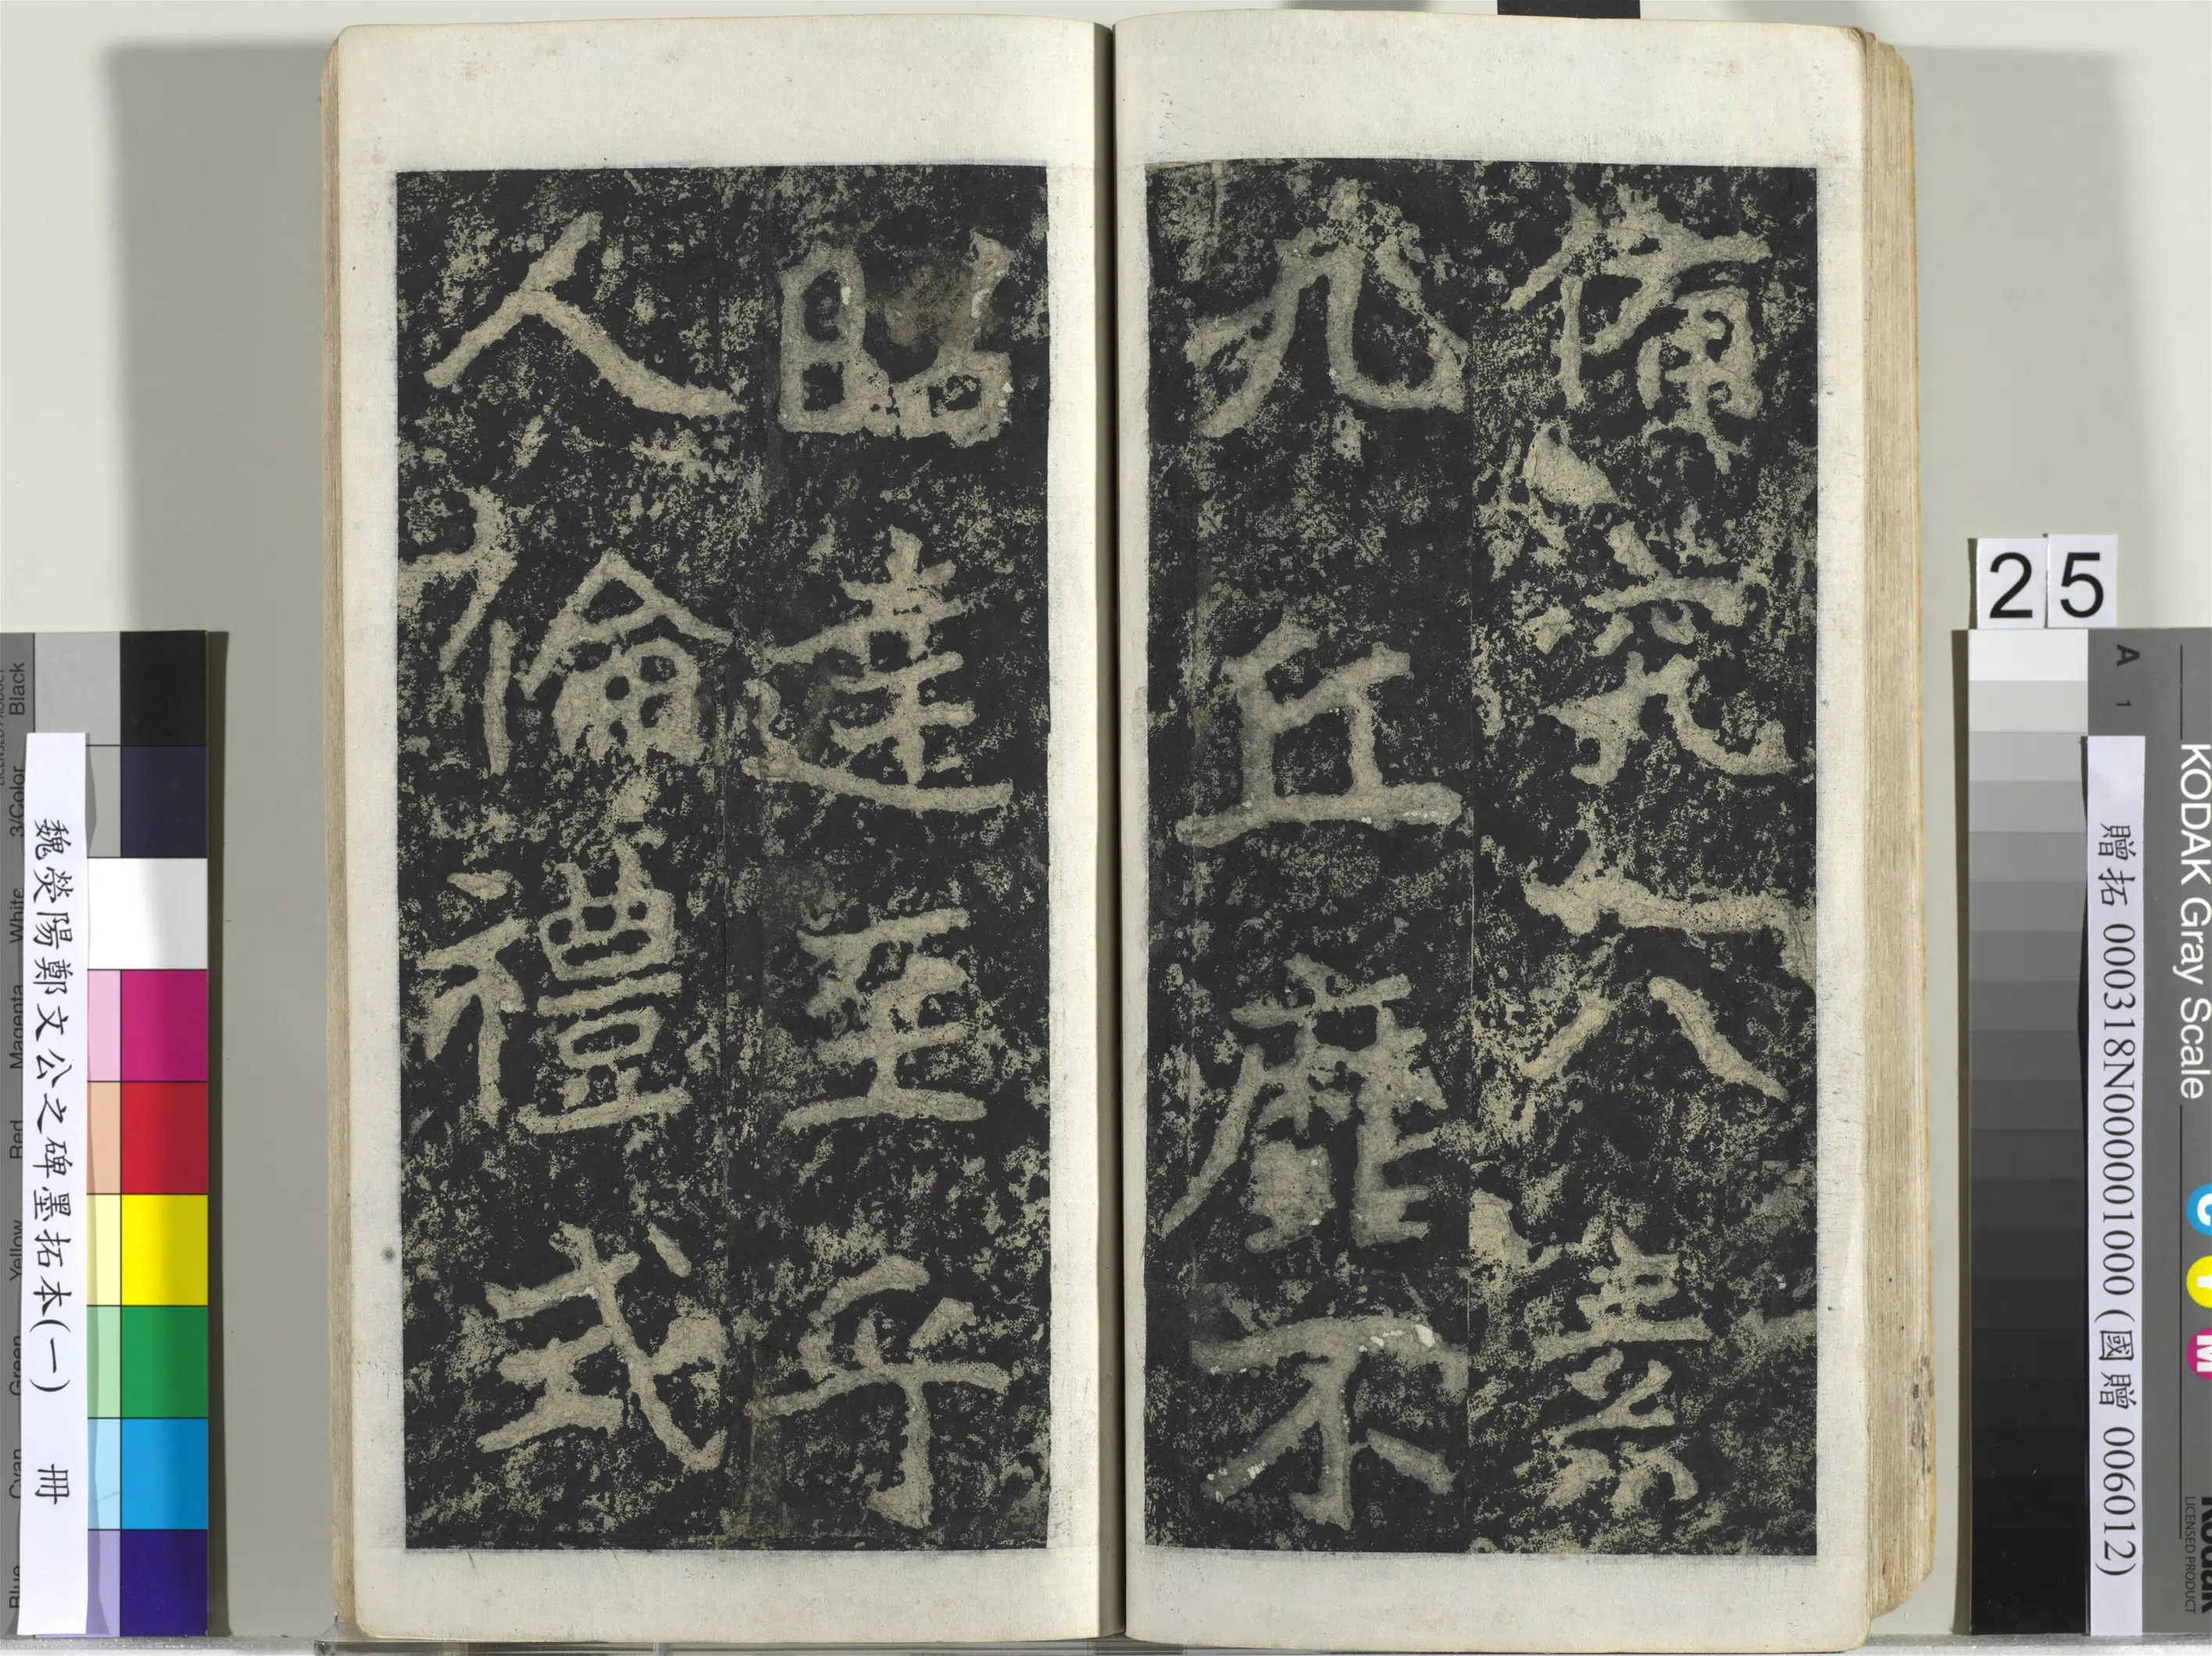 備究八素
九丘靡不
昭達至乎
人倫禮式
25
魏滎陽鄭文公之碑墨拓本(一) 冊
贈拓 000318N000001000 (國贈 006012)
KODAK Gray Scale
A 1
C
Y
M
Kodak
LICENSED PRODUCT
Black
3/Color
White
Magenta
Red
Yellow
Green
Cyan
Blue